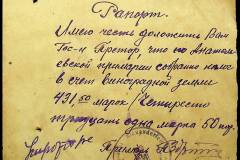 Рапорт.
Имею честь доложить Вам
Гос-н Претор, что по Анатоль
евской примарии собрано налог
в счет виноградной земли
431,50 марок (Четыреста
тридцать одна марка 50 пф.